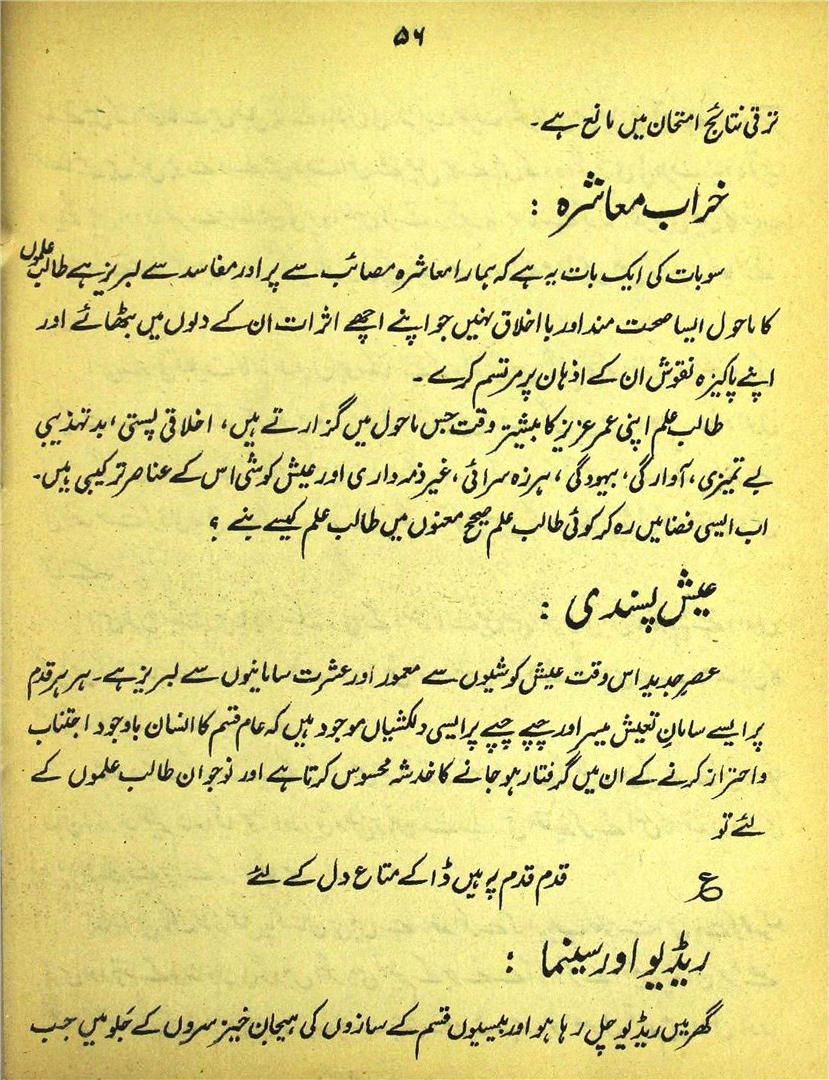 ۵۶
ترقی نتائج امتحان میں مانع ہے۔
خراب معاشرہ :
سو بات کی ایک بات یہ ہے کہ ہمارا معاشرہ مصائب سے پر اور مفاسد سے لبریز ہے طالب علموں
کا ماحول ایسا صحت مند اور بااخلاق نہیں جو اپنے اچھے اثرات ان کے دلوں میں بٹھائے اور
اپنے پاکیزہ نقوش ان کے اذہان پر مرتسم کرے۔
طالب علم اپنی عمر عزیز کا بیشتر وقت جس ماحول میں گزارتے ہیں، اخلاقی پستی، بد تہذیبی
بے تمیزی، آوارگی، بیہودگی، ہرزہ سرائی، غیر ذمہ داری اور عیش کوشی اس کے عناصر ترکیبی ہیں۔
اب ایسی فضا میں رہ کر کوئی طالب علم صحیح معنوں میں طالب علم کیسے بنے ؟
عیش پسندی :
عصرِ جدید اس وقت عیش کوشیوں سے معمور اور عشرت سامانیوں سے لبریز ہے۔ ہر ہر قدم
پر ایسے سامانِ تعیش میسر اور چپے چپے پر ایسی دلکشیاں موجود ہیں کہ عام قسم کا انسان باوجود اجتناب
و احتراز کرنے کے ان میں گرفتار ہو جانے کا خدشہ محسوس کرتا ہے اور نوجوان طالب علموں کے
لئے تو
ع قدم قدم پہ ہیں ڈاکے متاع دل کے لئے
ریڈیو اور سینما :
گھر میں ریڈیو چل رہا ہو اور بیسیوں قسم کے سازوں کی ہیجان خیز سروں کے جَلو میں جب